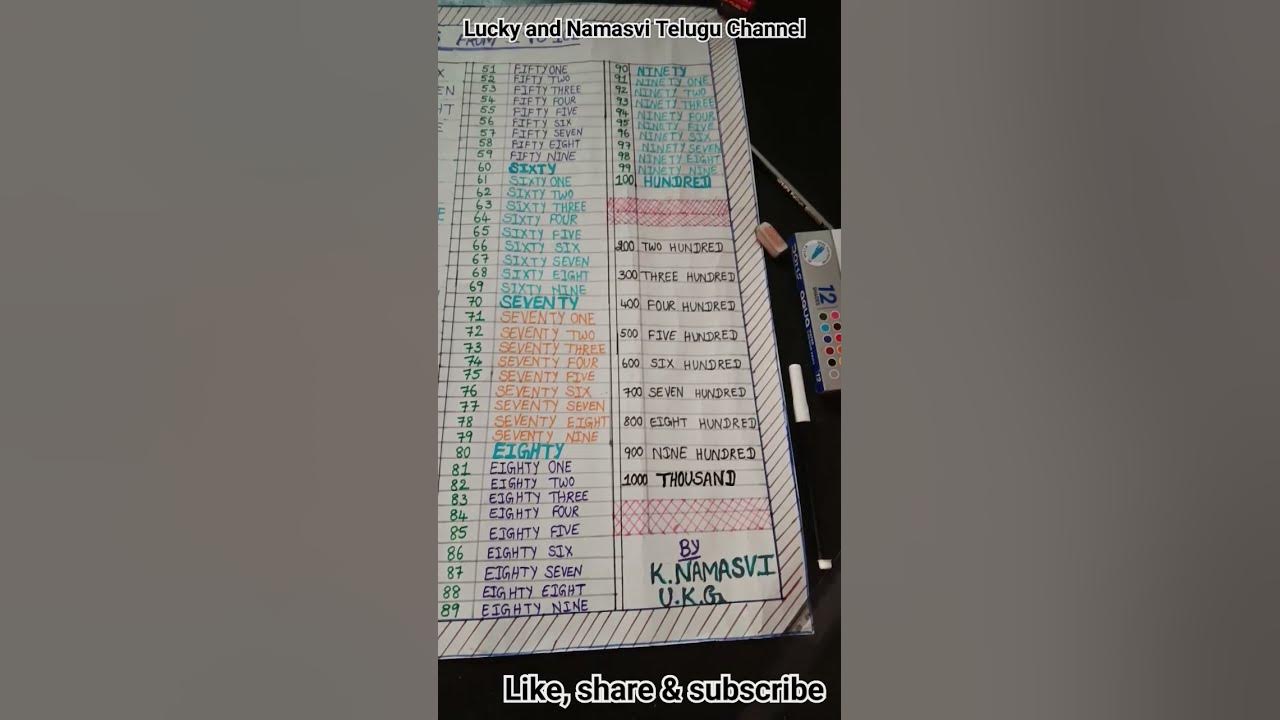 Lucky and Namasvi Telugu Channel
FROM
51 FIFTY ONE
52 FIFTY TWO
53 FIFTY THREE
54 FIFTY FOUR
55 FIFTY FIVE
56 FIFTY SIX
57 FIFTY SEVEN
58 FIFTY EIGHT
59 FIFTY NINE
60 SIXTY
61 SIXTY ONE
62 SIXTY TWO
63 SIXTY THREE
64 SIXTY FOUR
65 SIXTY FIVE
66 SIXTY SIX
67 SIXTY SEVEN
68 SIXTY EIGHT
69 SIXTY NINE
70 SEVENTY
71 SEVENTY ONE
72 SEVENTY TWO
73 SEVENTY THREE
74 SEVENTY FOUR
75 SEVENTY FIVE
76 SEVENTY SIX
77 SEVENTY SEVEN
78 SEVENTY EIGHT
79 SEVENTY NINE
80 EIGHTY
81 EIGHTY ONE
82 EIGHTY TWO
83 EIGHTY THREE
84 EIGHTY FOUR
85 EIGHTY FIVE
86 EIGHTY SIX
87 EIGHTY SEVEN
88 EIGHTY EIGHT
89 EIGHTY NINE
90 NINETY
91 NINETY ONE
92 NINETY TWO
93 NINETY THREE
94 NINETY FOUR
95 NINETY FIVE
96 NINETY SIX
97 NINETY SEVEN
98 NINETY EIGHT
99 NINETY NINE
100 HUNDRED
200 TWO HUNDRED
300 THREE HUNDRED
400 FOUR HUNDRED
500 FIVE HUNDRED
600 SIX HUNDRED
700 SEVEN HUNDRED
800 EIGHT HUNDRED
900 NINE HUNDRED
1000 THOUSAND
BY
K.NAMASVI
U.K.G
12
Like, share & subscribe